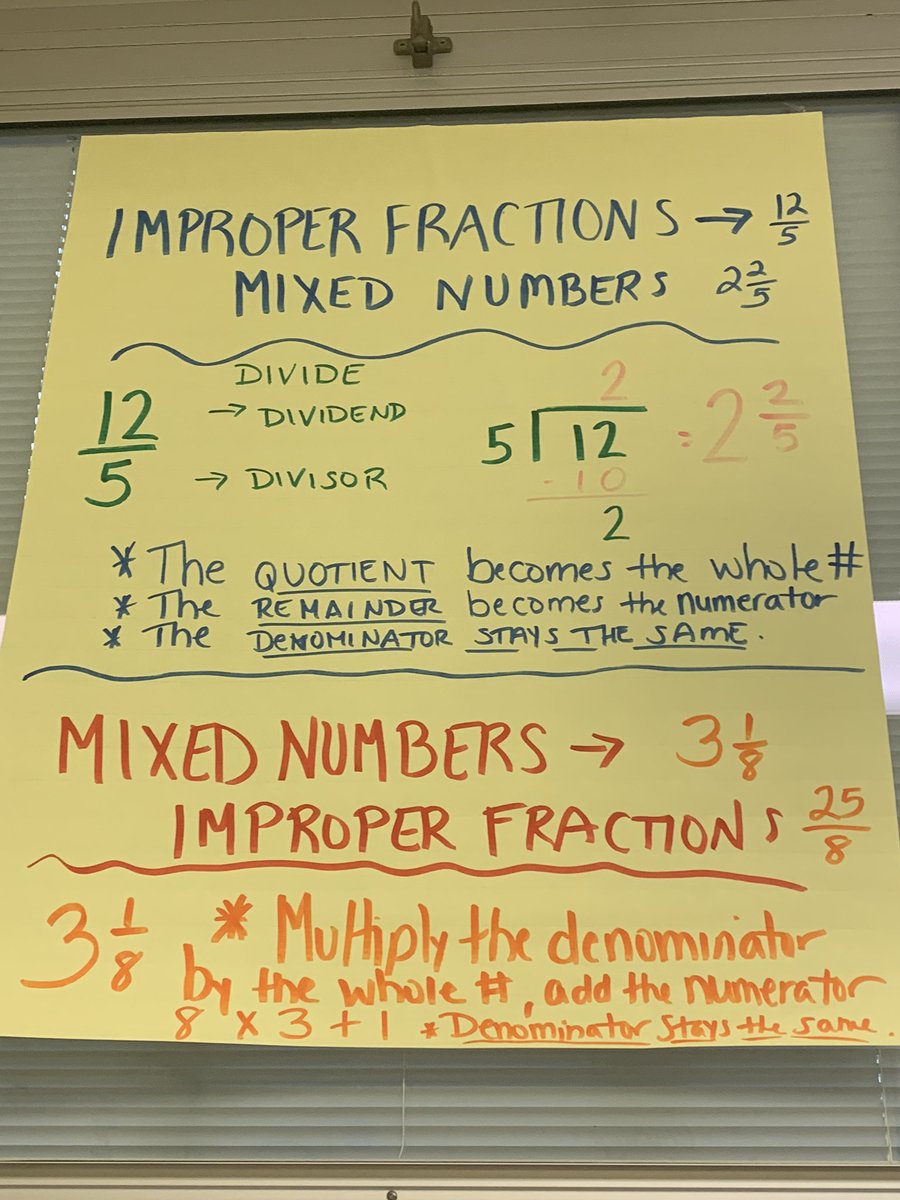 IMPROPER FRACTIONS → 12/5
MIXED NUMBERS 2 2/5
DIVIDE
12/5 → DIVIDEND
→ DIVISOR
2
5 12 = 2 2/5
- 10
2
* The QUOTIENT becomes the whole #
* The REMAINDER becomes the numerator
* The DENOMINATOR STAYS THE SAME.
MIXED NUMBERS → 3 1/8
IMPROPER FRACTIONS 25/8
3 1/8 * Multiply the denominator
by the whole #, add the numerator
8 x 3 + 1 * Denominator stays the same.